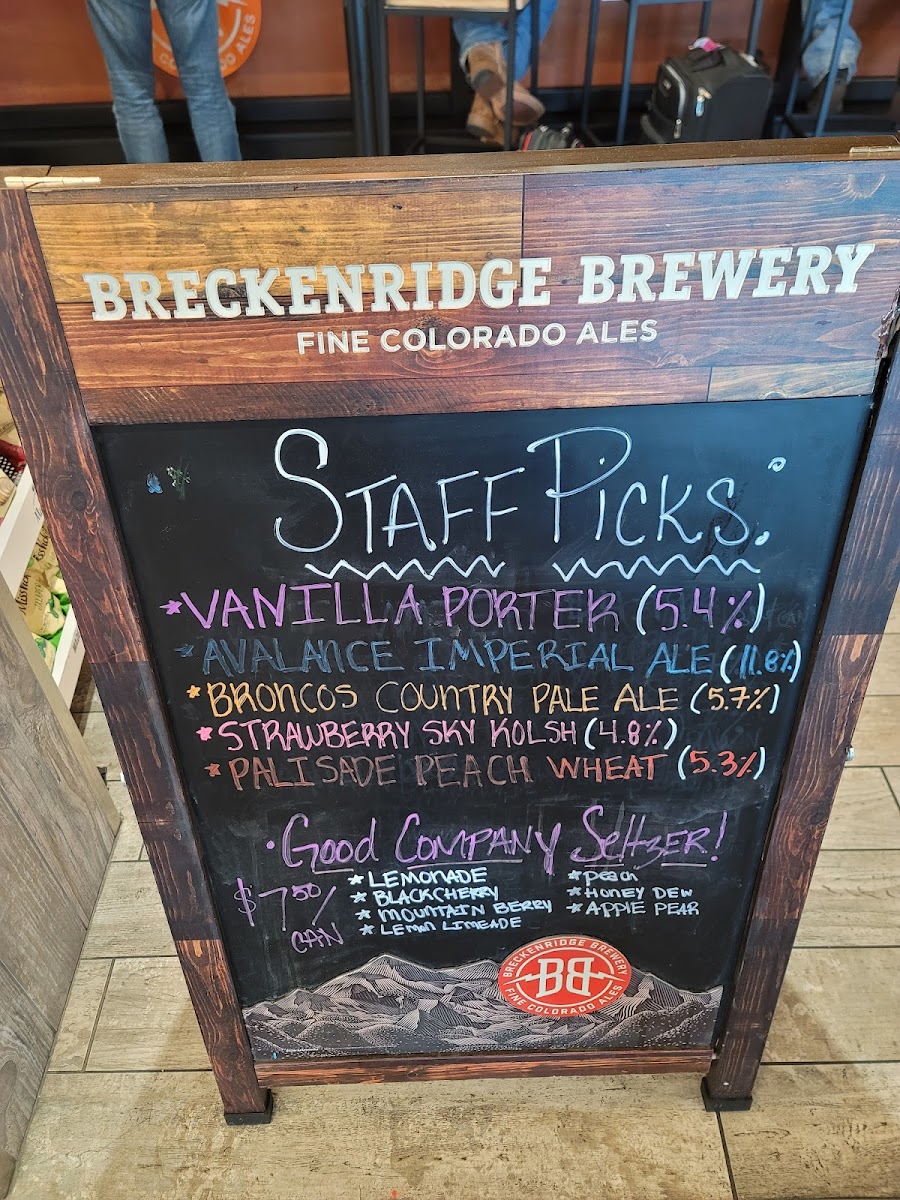 BRECKENRIDGE BREWERY
FINE COLORADO ALES
STAFF PICKS:
*VANILLA PORTER (5.4%)
*AVALANCE IMPERIAL ALE (11.8%)
*BRONCOS COUNTRY PALE ALE (5.7%)
*STRAWBERRY SKY KOLSH (4.8%)
*PALISADE PEACH WHEAT (5.3%)
• GOOD COMPANY SELTZER!
$7.50/CAN
*LEMONADE
*BLACKCHERRY
*MOUNTAIN BERRY
*LEMON LIMEADE
*peach
*HONEY DEW
*APPlE PEAR
BRECKENRIDGE BREWERY
BB
FINE COLORADO ALES